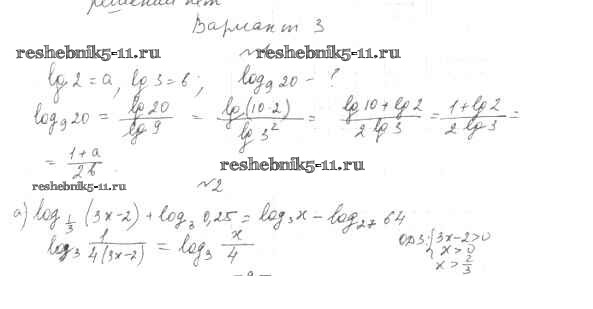 решений нет
Вариант 3
reshebnik5-11.ru №1 reshebnik5-11.ru
lg 2 = a, lg 3 = b; log₉ 20 - ?
log₉ 20 = lg 20 / lg 9 = lg (10·2) / lg 3² = (lg 10 + lg 2) / (2 lg 3) = (1 + lg 2) / (2 lg 3) =
= (1 + a) / 2b . reshebnik5-11.ru
reshebnik5-11.ru №2
а) log_{1/3} (3x-2) + log₃ 0,25 = log₃ x - log₂₇ 64
log₃ 1 / 4(3x-2) = log₃ x / 4
ОДЗ: { 3x-2>0
x>0
x > 2/3